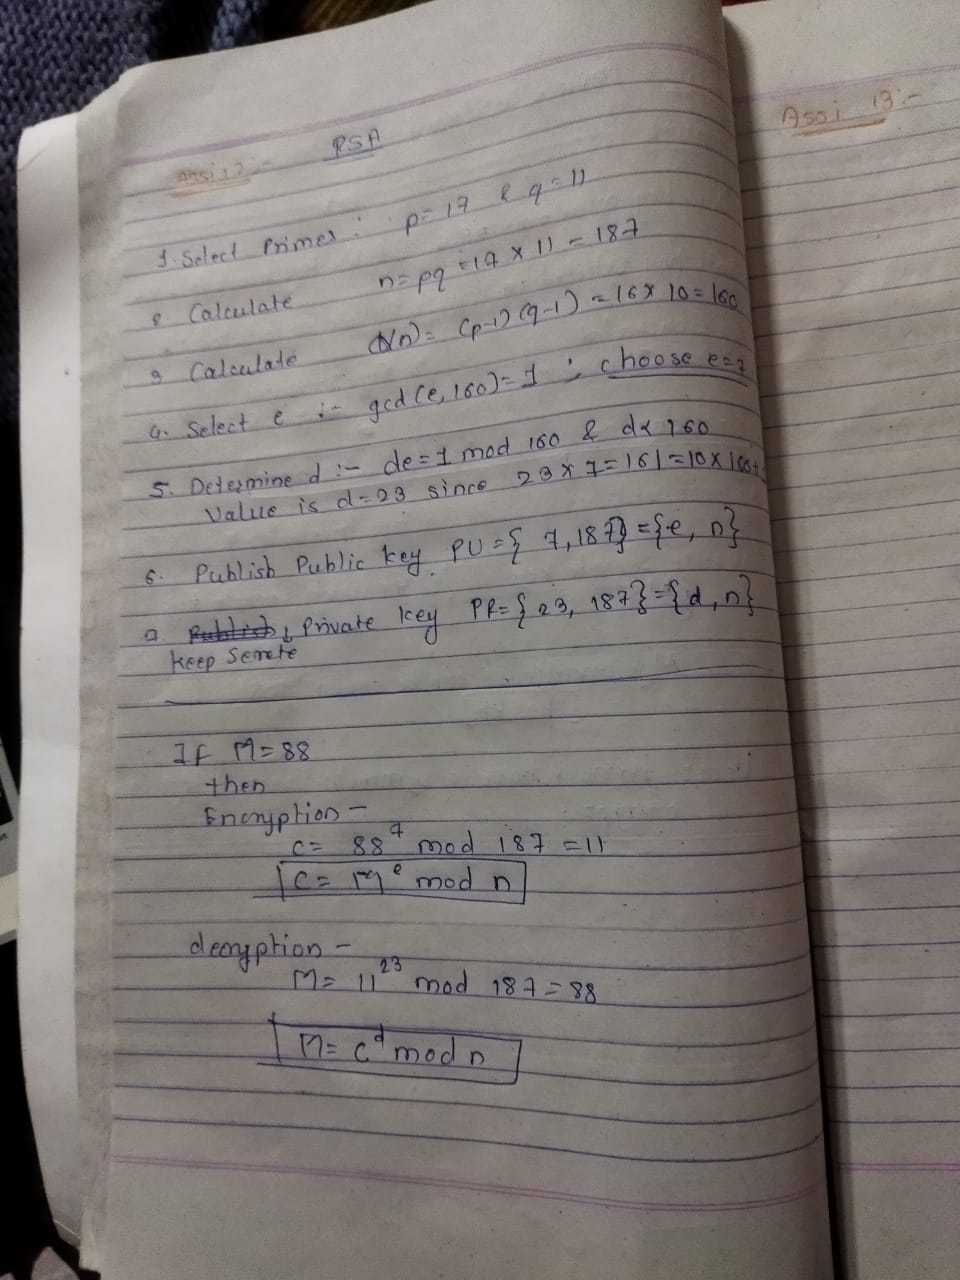 RSA
Assi 12:-
Assi 13:-
1. Select Primes: p=17 & q=11
2 Calculate n=pq =17 x 11 = 187
3 Calculate ϕ(n)= (p-1)(q-1) = 16x 10=160
4. Select e :- gcd(e,160)=1 ; choose e=7
5. Determine d :- de=1 mod 160 & d< 160
Value is d=23 since 23x7=161=10x160+
6. Publish Public key PU={ 7,187}={e, n}
Publish, Private key PR={ 23, 187}={d,n}
keep Secrete
If M=88
then
Encryption -
C= 88⁷ mod 187 =11
C= Mᵉ mod n
decryption -
M= 11²³ mod 187=88
M= cᵈ mod n